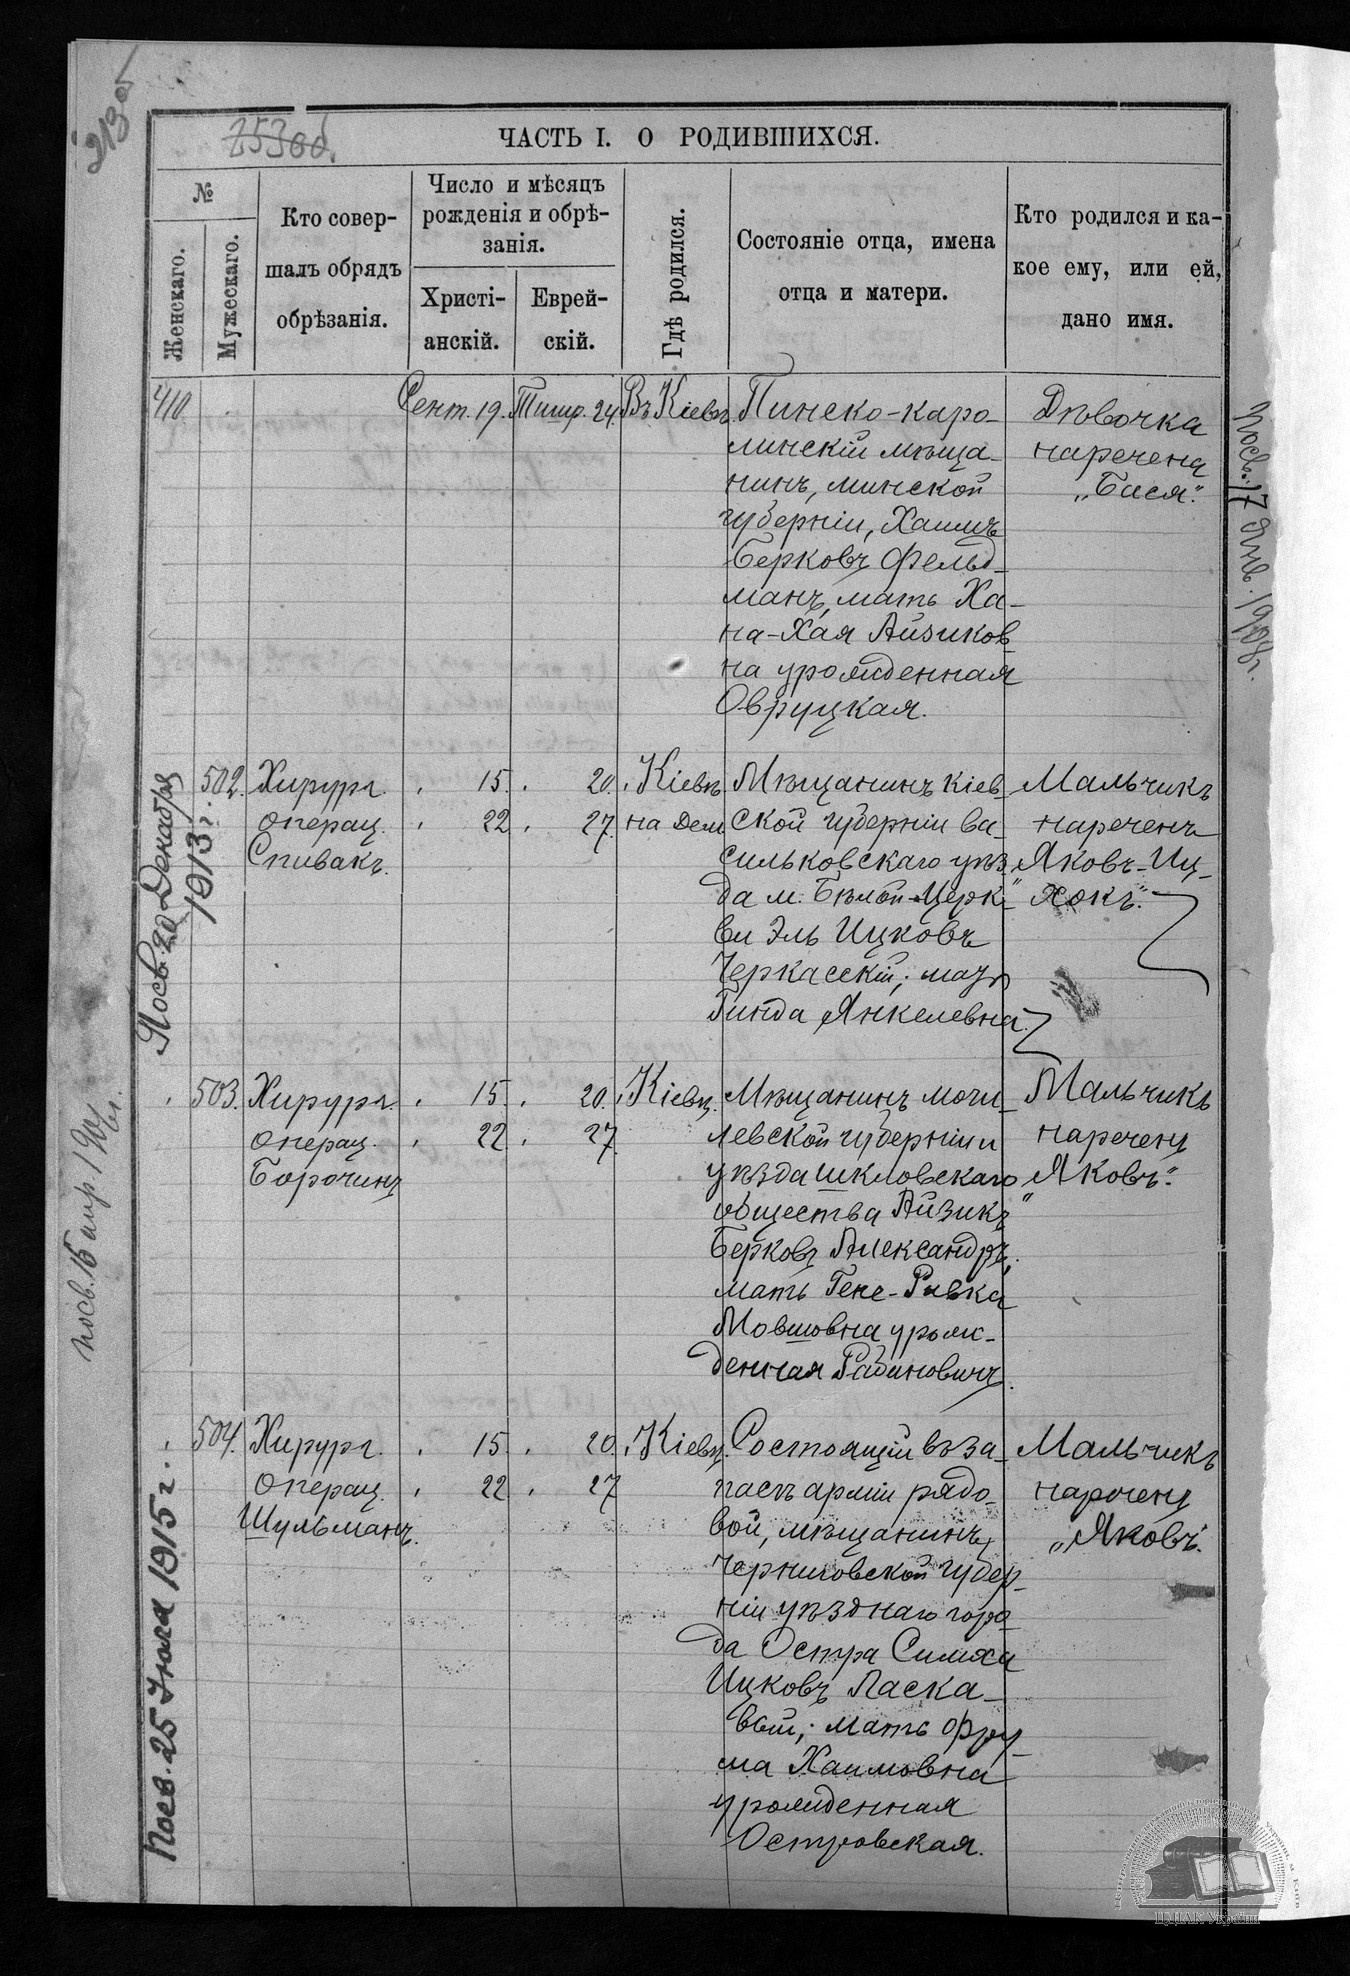 213 об
253 об.
ЧАСТЬ I. О РОДИВШИХСЯ.
№
Женскаго.
Мужескаго.
Кто совер-
шалъ обрядъ
обрѣзанія.
Число и мѣсяцъ
рожденія и обрѣ-
занія.
Христі-
анскій.
Еврей-
скій.
Гдѣ родился.
Состояніе отца, имена
отца и матери.
Кто родился и ка-
кое ему, или ей,
дано имя.
410
Сент. 19.
Тишр. 24.
Въ Кіевѣ
Пинско-каро-
линскій мѣща-
нинъ, минской
губерніи, Хаимъ
Берковъ Фельд-
манъ, мать Ха-
на-Хая Айзиков
на урожденная
Овруцкая.
Дѣвочка
наречена
„Бася".
посв. 17 Янв. 1908 г.
502.
Хирург.
операц.
Спивакъ.
15.
22
20.
27.
Кіевѣ
на Дем
Мѣщанинъ Кіев-
ской губерніи ва-
сильковскаго уѣз
да м. Бѣлой-Церк-
ви Эль Ицковъ
Черкасскій; мать
Гинда Янкелевна.
Мальчикъ
нареченъ
„Яковъ-Иц-
хокъ".
Посв. 20 Декабря
1913 г.
503.
Хирург.
операц.
Борочинъ
15.
22
20.
27.
Кіевѣ.
Мѣщанинъ моги-
левской губерніи и
уѣзда шкловскаго
общества Айзикъ
Берковъ Александръ,
мать Гене-Ривка
Мовшовна урож-
денная Рабиновичъ.
Мальчикъ
нареченъ
„Яковъ".
посв. 16 апр. 19
504.
Хирург.
Операц.
Шульманъ.
15.
22
20
27
Кіевѣ.
Состоящій въ за-
пасѣ арміи рядо-
вой, мѣщанинъ
Черниговской губер-
ніи уѣзднаго горо-
да Остра Симха
Ицковъ Ласка-
вый; мать Фру-
ма Хаимовна
урожденная
Островская.
Мальчикъ
нареченъ
„Яковъ".
Посв. 25 Іюля 1915 г.
ЦДІАК України